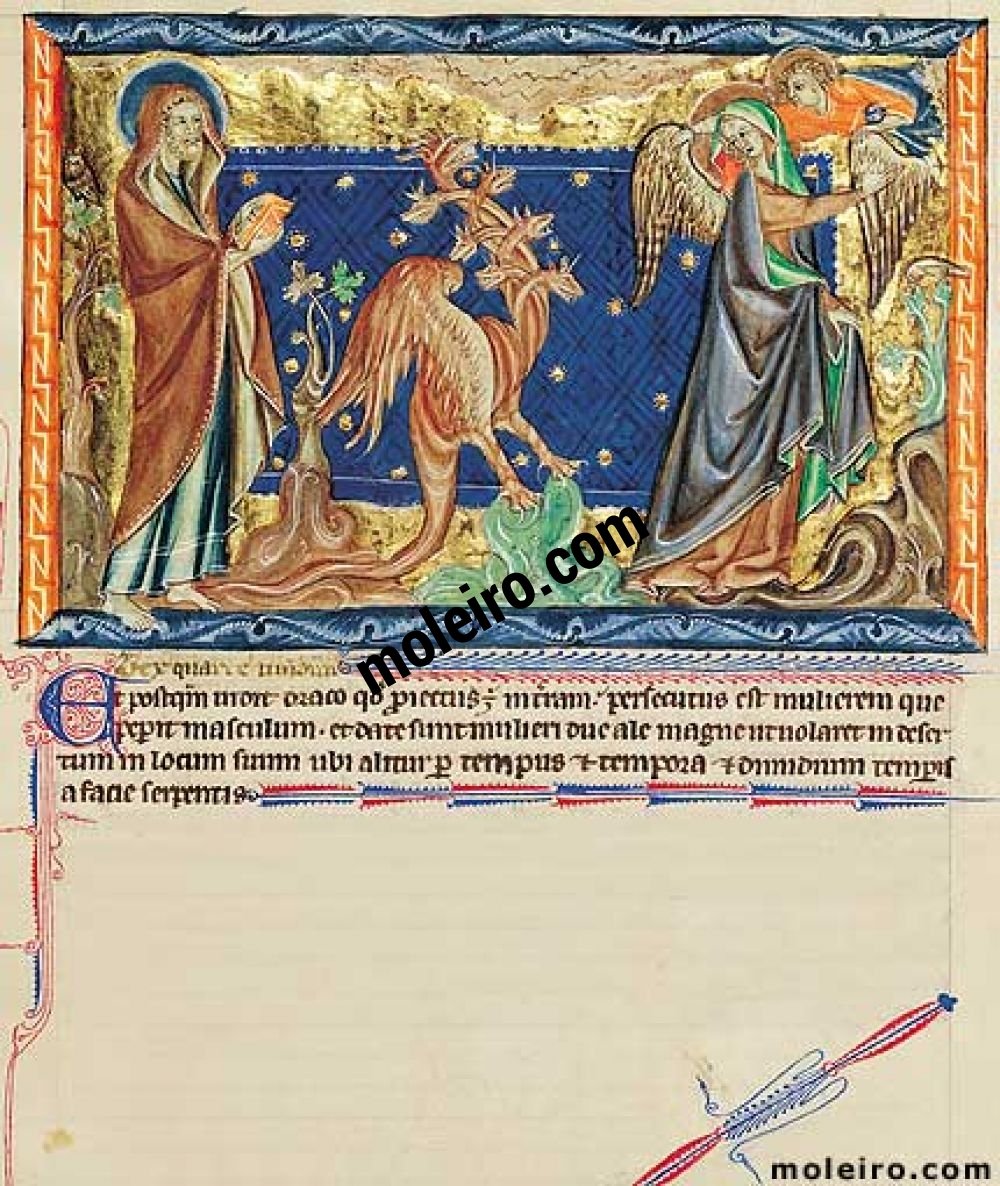 moleiro.com
Et postq̄m uidit draco qđ proiectus ÷ in t̄ram · persecutus est mulierem que
peperit masculum · et date sunt mulieri due ale magne ut uolaret in deser
tum in locum suum ubi alitur ꝑ tempus ⁊ tempora ⁊ dimidium tempis
a facie serpentis
moleiro.com